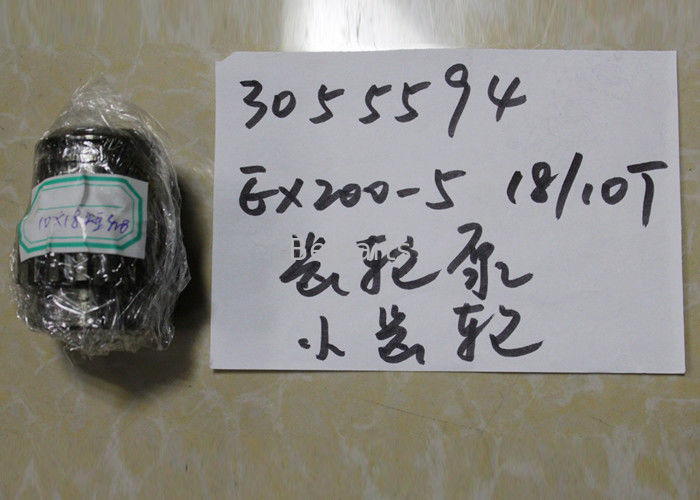 3055594
EX200-5 18/10T
齿轮泵
小齿轮
10×18